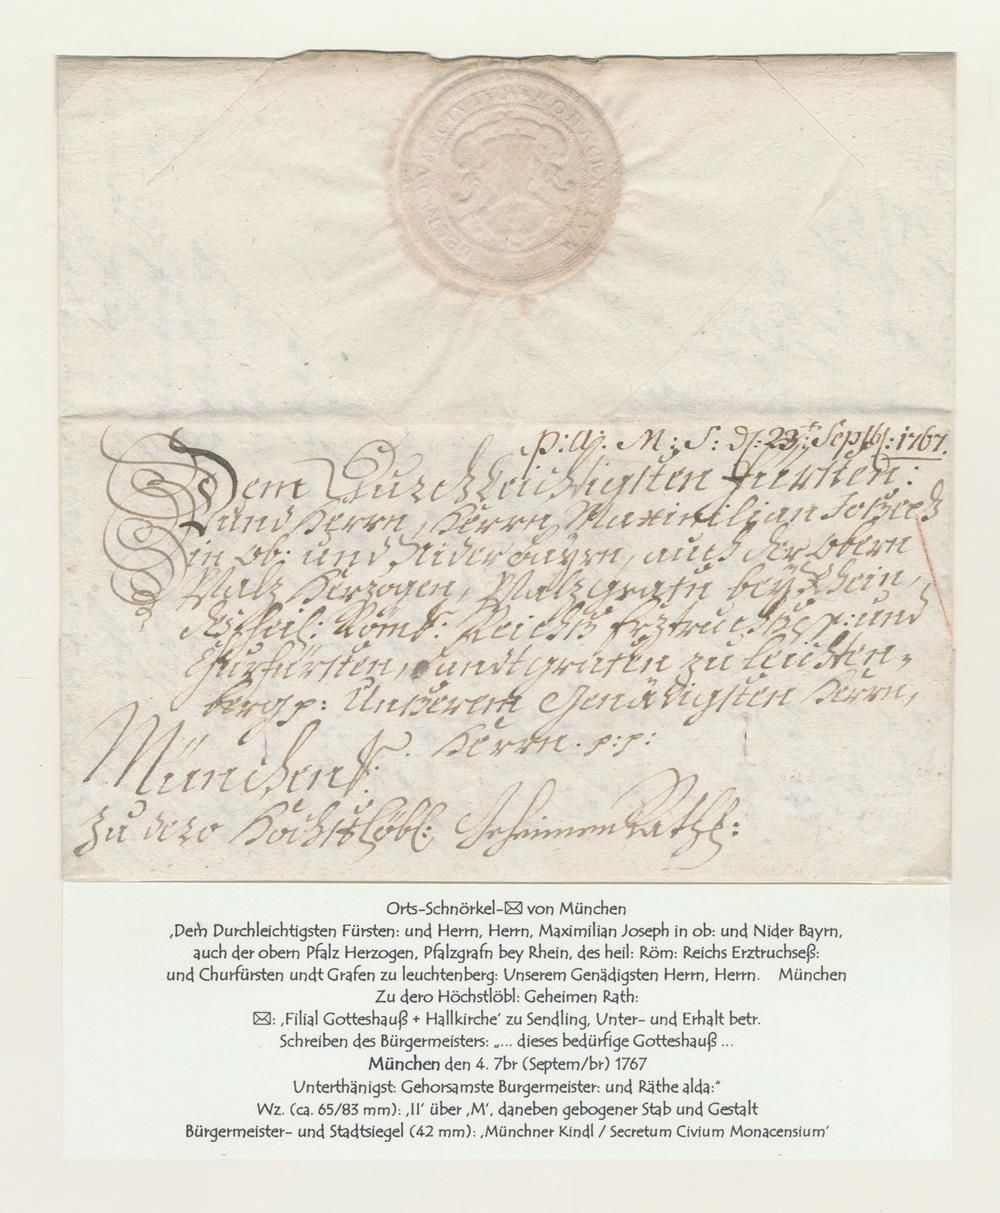 SECRETUM CIVIUM MONACENSIUM
M: S: d: 23t: Septbr: 1767.
Dem Durchleichtigsten Fürsten:
und Herrn, Herrn, Maximilian Joseph
in ob: und Niderbayrn, auch der obern
Pfalz Herzogen, Pfalzgrafn bey Rhein,
des heil: Röm: Reichs Erztruchseß p: und
Churfürsten, Landtgrafen zu leichten-
berg p: Unserem Genädigsten Herrn,
Herrn. p: p:
München
Zu dero Höchstlöbl: Geheimen Rath:
Orts-Schnörkel-✉ von München
‚Dem Durchleichtigsten Fürsten: und Herrn, Herrn, Maximilian Joseph in ob: und Nider Bayrn,
auch der obern Pfalz Herzogen, Pfalzgrafn bey Rhein, des heil: Röm: Reichs Erztruchseß:
und Churfürsten undt Grafen zu leuchtenberg: Unserem Genädigsten Herrn, Herrn. München
Zu dero Höchstlöbl: Geheimen Rath:
✉: ‚Filial Gotteshauß + Hallkirche‘ zu Sendling, Unter- und Erhalt betr.
Schreiben des Bürgermeisters: „... dieses bedürfige Gotteshauß ...
München den 4. 7br (Septem/br) 1767
Unterthänigst: Gehorsamste Burgermeister: und Räthe alda:“
Wz. (ca. 65/83 mm): ‚II‘ über ‚M‘, daneben gebogener Stab und Gestalt
Bürgermeister- und Stadtsiegel (42 mm): ‚Münchner Kindl / Secretum Civium Monacensium‘